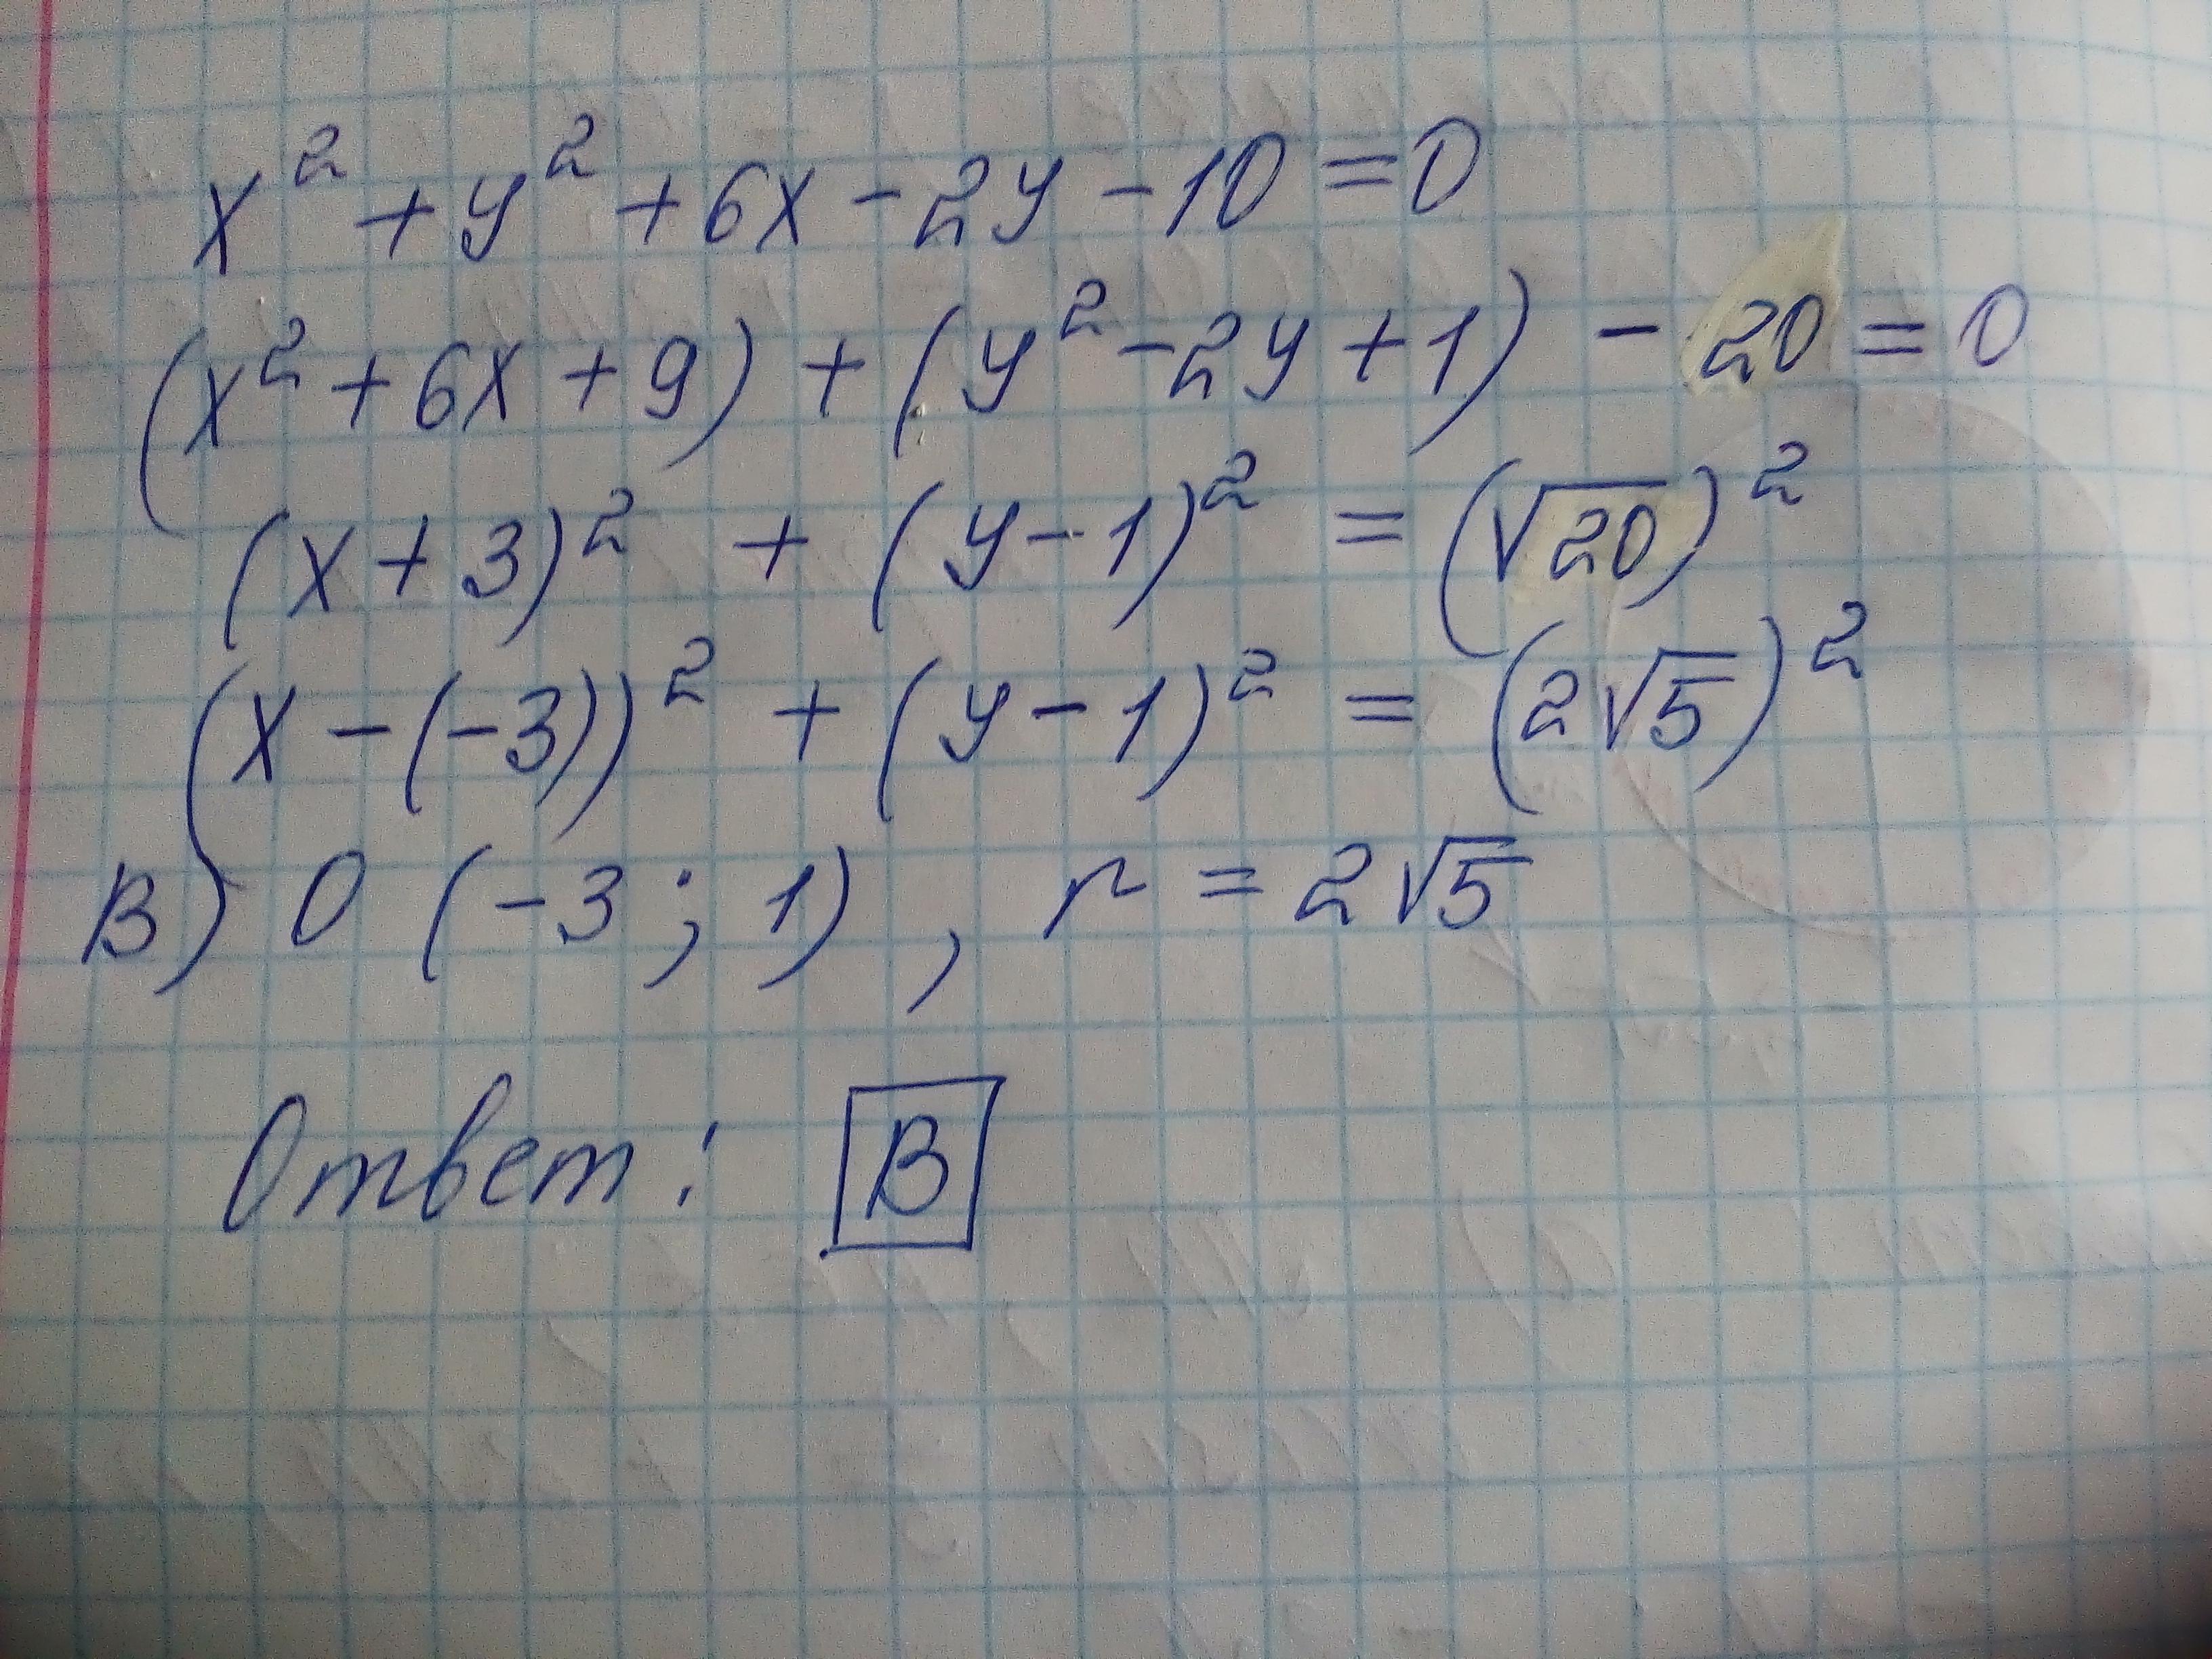 x² + y² + 6x - 2y - 10 = 0
(x² + 6x + 9) + (y² - 2y + 1) - 20 = 0
(x + 3)² + (y - 1)² = (√20)²
(x - (-3))² + (y - 1)² = (2√5)²
В) О (-3 ; 1) , r = 2√5
Ответ : В